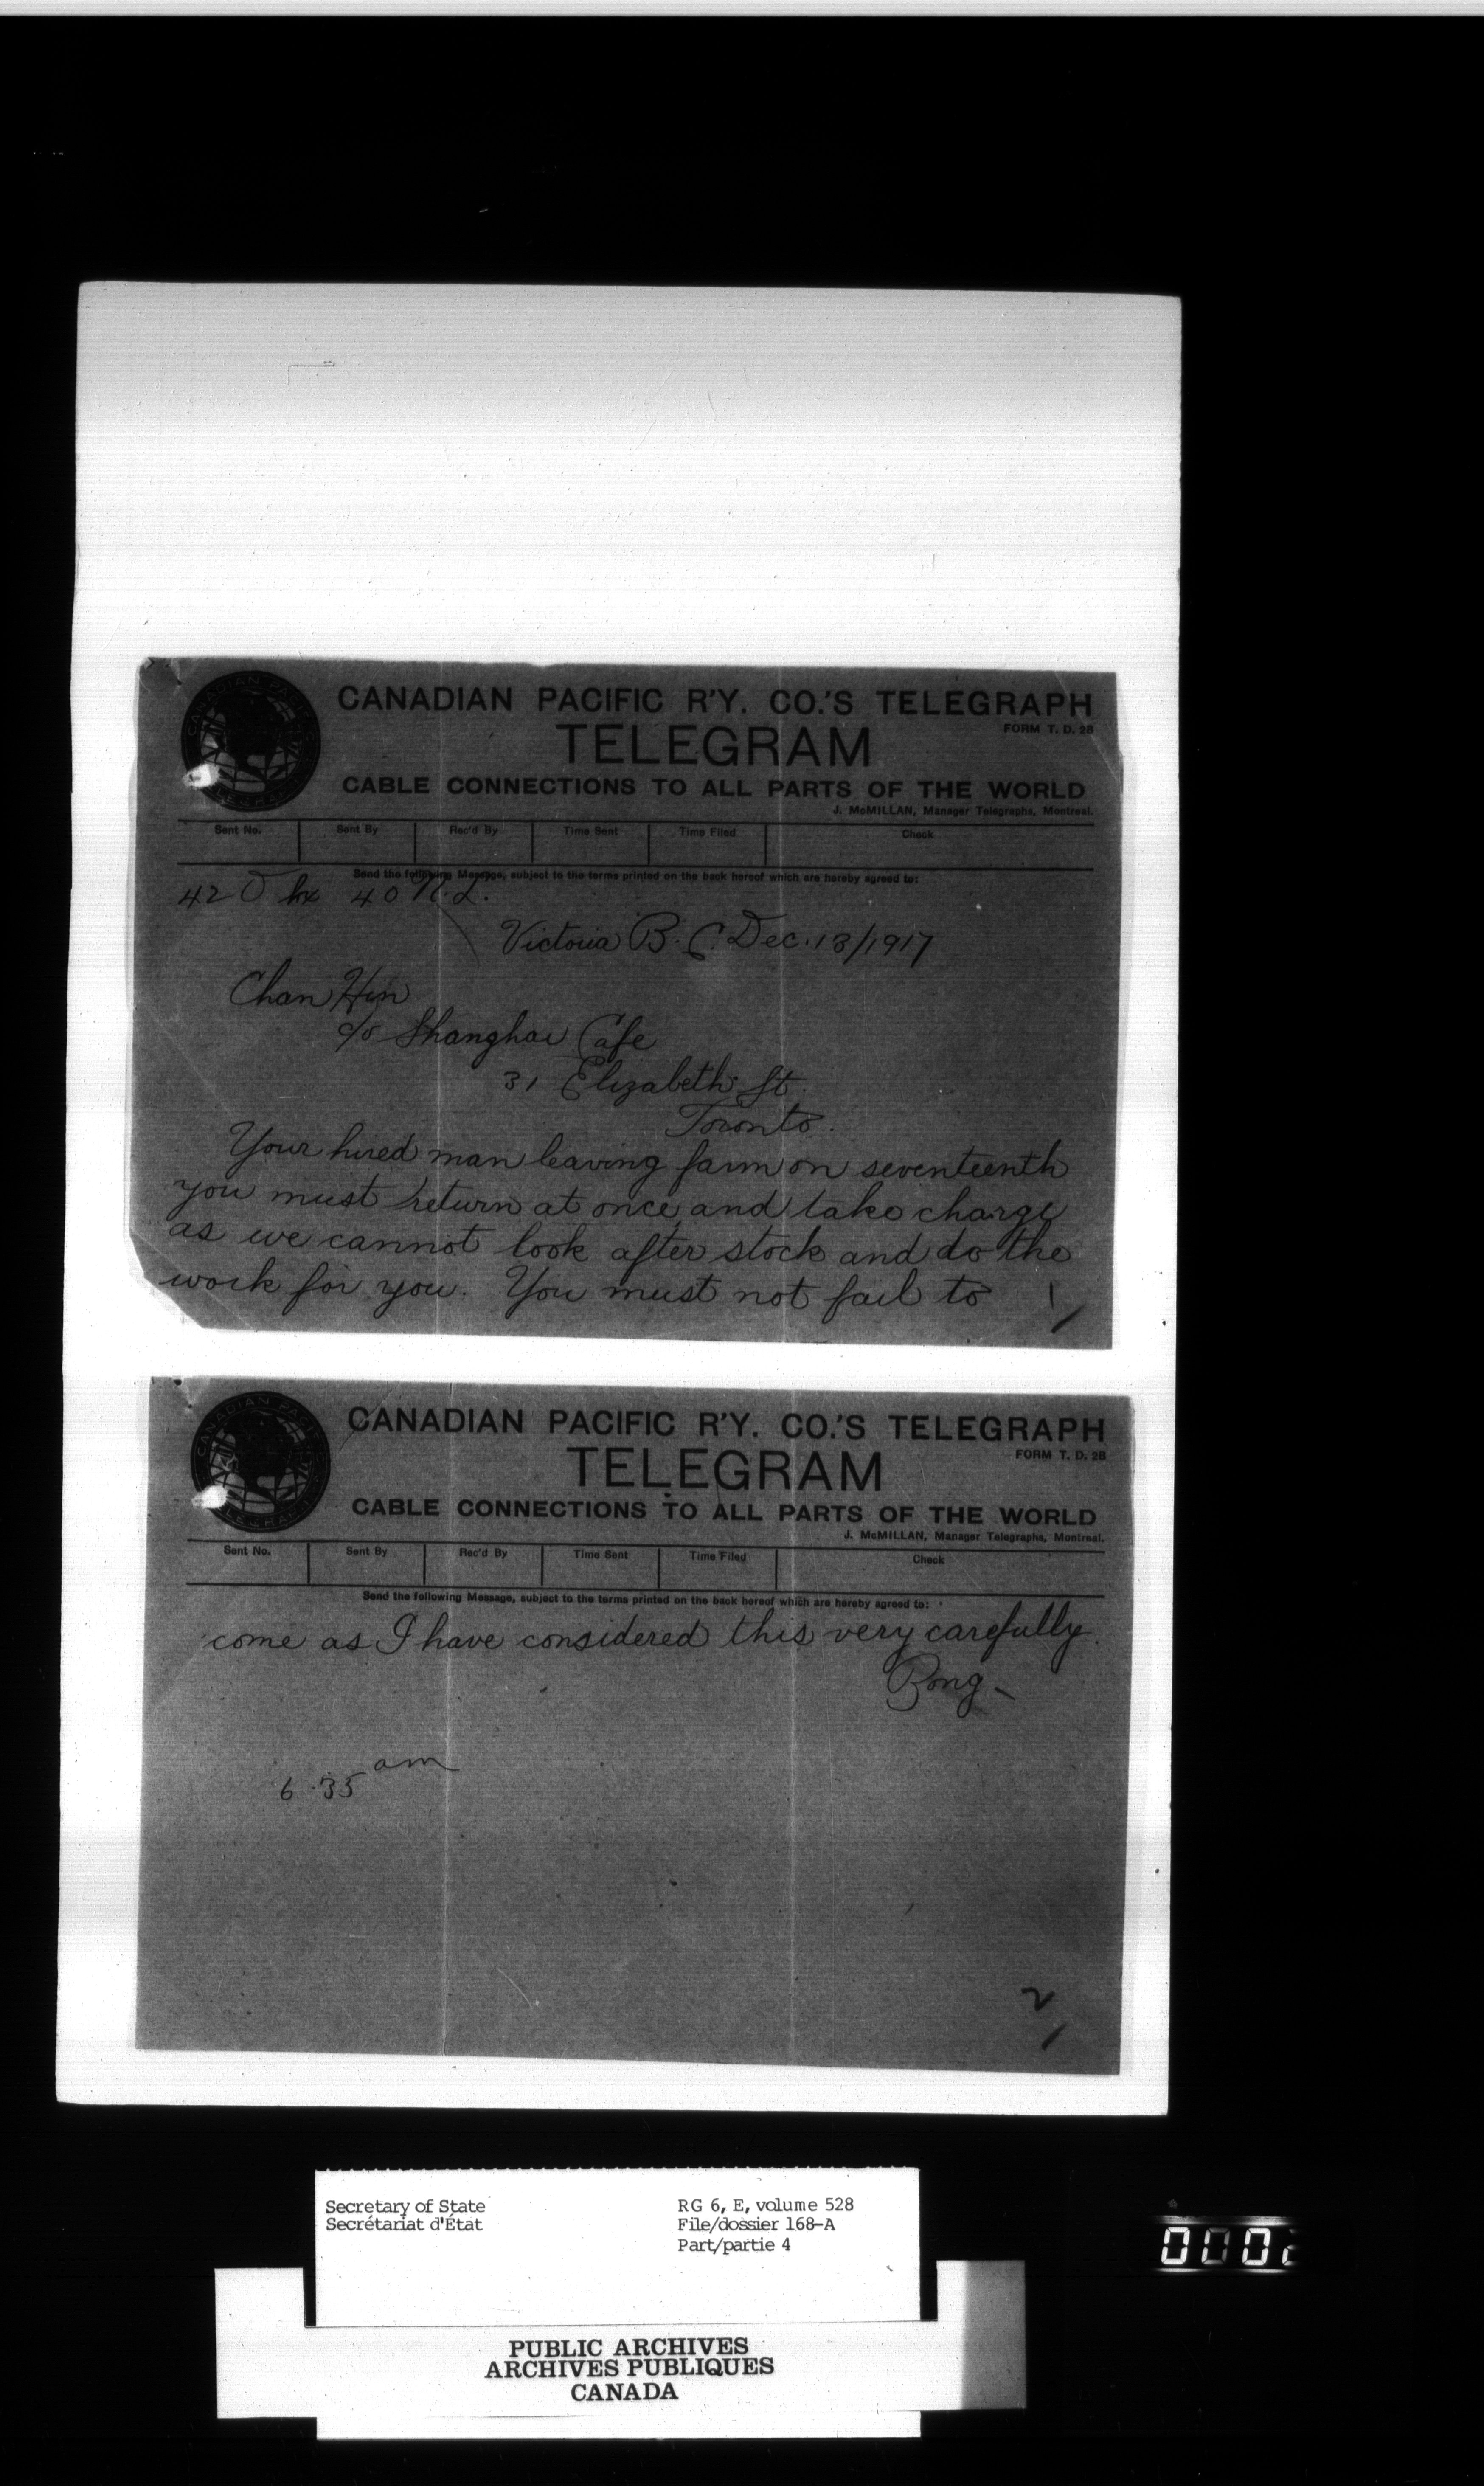 CANADIAN PACIFIC R'Y. CO.'S TELEGRAPH
FORM T. D. 2B
TELEGRAM
CABLE CONNECTIONS TO ALL PARTS OF THE WORLD
J. McMILLAN, Manager Telegraphs, Montreal.
Sent No. Sent By Rec'd By Time Sent Time Filed Check
Send the following Message, subject to the terms printed on the back hereof which are hereby agreed to:
42 40 N.L.
Victoria B.C. Dec. 13/1917
Chan Hin
c/o Shanghai Cafe
31 Elizabeth St
Toronto.
Your hired man leaving farm on seventeenth
you must return at once and take charge
as we cannot look after stock and do the
work for you. You must not fail to
1
CANADIAN PACIFIC R'Y. CO.'S TELEGRAPH
FORM T. D. 2B
TELEGRAM
CABLE CONNECTIONS TO ALL PARTS OF THE WORLD
J. McMILLAN, Manager Telegraphs, Montreal.
Sent No. Sent By Rec'd By Time Sent Time Filed Check
Send the following Message, subject to the terms printed on the back hereof which are hereby agreed to:
come as I have considered this very carefully.
Bong-
6.35 am
2
Secretary of State
Secrétariat d'État
RG 6, E, volume 528
File/dossier 168-A
Part/partie 4
PUBLIC ARCHIVES
ARCHIVES PUBLIQUES
CANADA